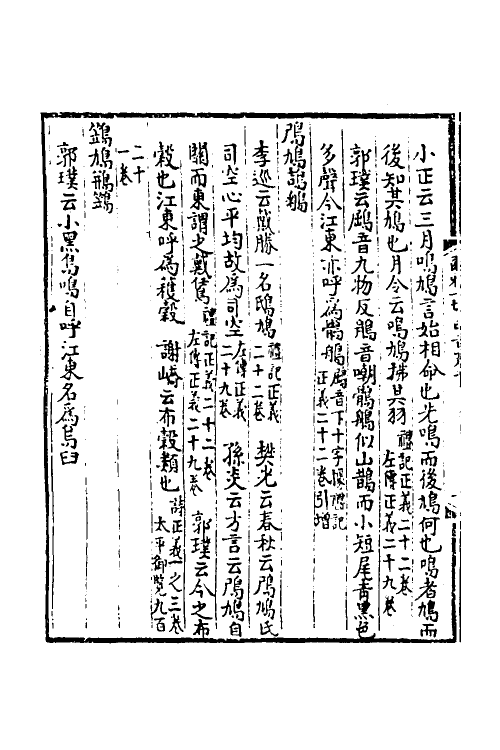 小正云三月鳴鳩言始相命也先鳴而後鳩何也鳴者鳩而
後知其鳩也月令云鳴鳩拂其羽禮記正義二十二卷左傳正義二十九卷
郭璞云鶌音九物反鵃音嘲鶻鵃似山鵲而小短尾青黑色
多聲今江東亦呼為鶻鵃鶌音下十字據禮記正義二十二卷引增
鳲鳩鴶鵴
李巡云戴勝一名鳲鳩禮記正義二十二卷 樊光云春秋云鳲鳩氏
司空心平均故為司空左傳正義二十九卷 孫炎云方言云鳲鳩自
關而東謂之戴鵀禮記正義二十二卷左傳正義二十九卷 郭璞云今之布
穀也江東呼為穫穀 謝嶠云布穀類也詩正義一之三卷太平御覽九百
二十一卷
鷑鳩鵧鷑
郭璞云小黑鳥鳴自呼江東名為烏臼